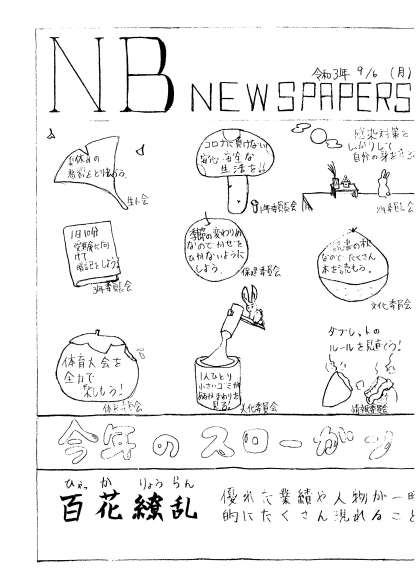 NB
令和3年 9/6 (月)
NEWSPAPERS
生徒会
コロナに負けない!
安心・安全な
生活を!!
1年委員会
感染対策を
しっかりして
自分の身を守る
2年委員会
1日10分
3年委員会
季節の変わりめ
なので かぜを
ひかないように
しよう。
保健委員会
読書の秋
なので たくさん
本を読もう。
文化委員会
体育大会を
全力で
楽しもう!
体育委員会
1人ひとり
小さいゴミや
見る!
美化委員会
タブレットの
ルールを見直そう!
情報委員会
今年のスローガン
ひゃっ か りょう らん
百花繚乱
優れた業績や人物が一時
的にたくさん現れること